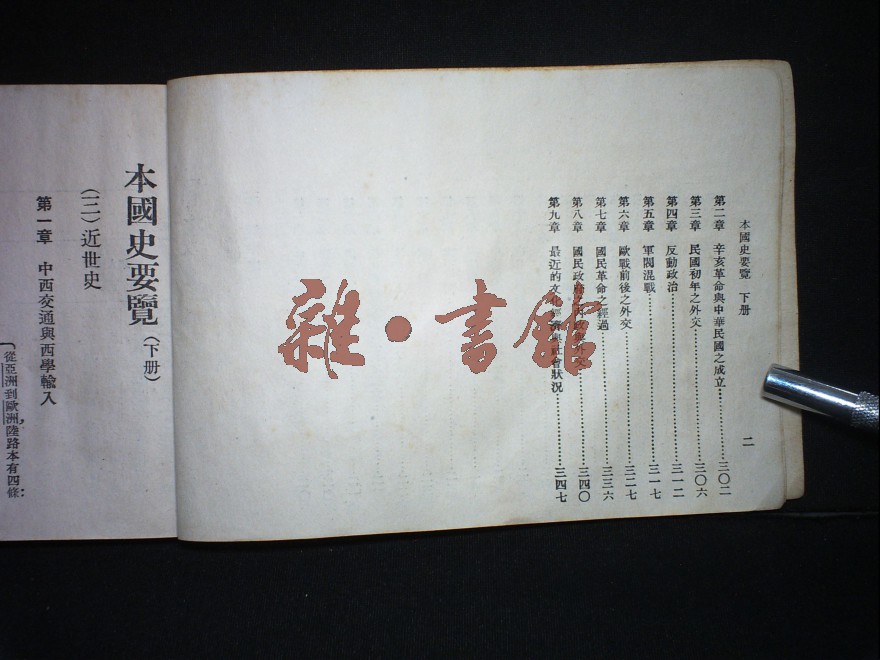 本國史要覽 下册 二
第二章 辛亥革命與中華民國之成立…………三〇二
第三章 民國初年之外交…………三〇六
第四章 反動政治…………三一二
第五章 軍閥混戰…………三一七
第六章 歐戰前後之外交…………三二七
第七章 國民革命之經過…………三三六
第八章 國民政府之內政與外交…………三四〇
第九章 最近的文化經濟與社會狀況…………三四七
雜·書館
本國史要覽(下册)
(三)近世史
第一章 中西交通與西學輸入
從亞洲到歐洲,陸路本有四條: